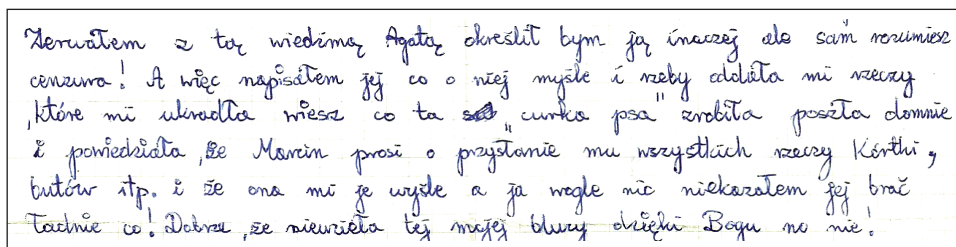 Zerwałem z tą wiedźmą Agatą określił bym ją inaczej ale sam rozumiesz
cenzura! A więc napisałem jej co o niej myśle i rzeby oddała mi rzeczy
które mi ukradła wiesz co ta "curka psa" zrobiła poszła domnie
i powiedziała, że Marcin prosi o przysłanie mu wszystkich rzeczy Kórtki,
butów itp. i że ona mi je wyśle a ja wogle nic niekazałem jej brać
ładnie co! Dobrze, że niewzieła tej mojej bluzy dzięki Bogu no nie!